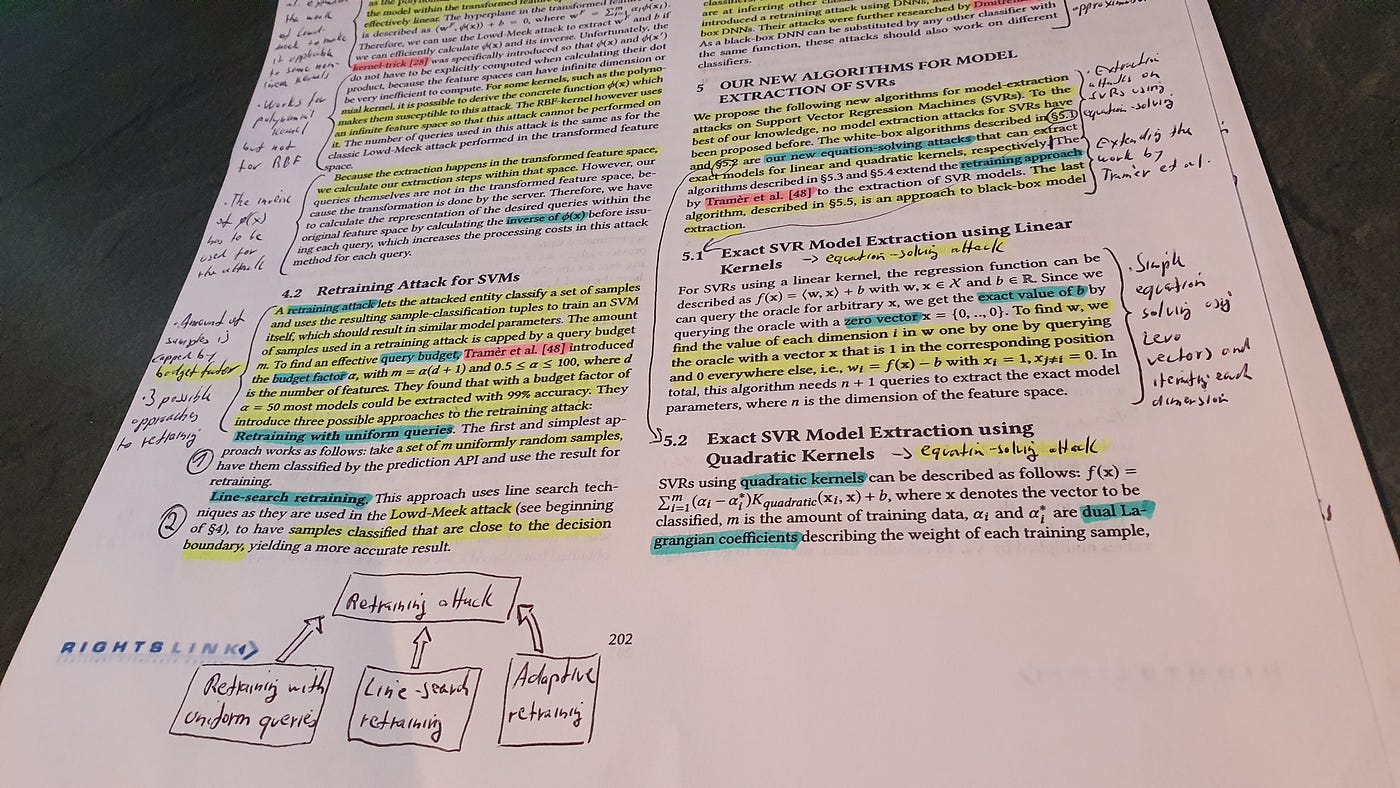 the model within the transformed feature
effectively linear. The hyperplane in the transformed feature
is described as ⟨w^F, ϕ(x)⟩ + b = 0, where w^F =
Therefore, we can use the Lowd-Meek attack to extract w^F and b if
we can efficiently calculate ϕ(x) and its inverse. Unfortunately, the
kernel-trick [28] was specifically introduced so that ϕ(x) and ϕ(x')
do not have to be explicitly computed when calculating their dot
product, because the feature spaces can have infinite dimension or
be very inefficient to compute. For some kernels, such as the polyno-
mial kernel, it is possible to derive the concrete function ϕ(x) which
makes them susceptible to this attack. The RBF-kernel however uses
an infinite feature space so that this attack cannot be performed on
it. The number of queries used in this attack is the same as for the
classic Lowd-Meek attack performed in the transformed feature
space.
Because the extraction happens in the transformed feature space,
we calculate our extraction steps within that space. However, our
queries themselves are not in the transformed feature space, be-
cause the transformation is done by the server. Therefore, we have
to calculate the representation of the desired queries within the
original feature space by calculating the inverse of ϕ(x) before issu-
ing each query, which increases the processing costs in this attack
method for each query.
the work
of Lowd-
Meek to make
it applicable
to some non-
linear kernels
· Works for
polynomial
kernel
but not
for RBF
· The inverse
of ϕ(x)
has to be
used for
the attack
4.2 Retraining Attack for SVMs
A retraining attack lets the attacked entity classify a set of samples
and uses the resulting sample-classification tuples to train an SVM
itself, which should result in similar model parameters. The amount
of samples used in a retraining attack is capped by a query budget
m. To find an effective query budget, Tramèr et al. [48] introduced
the budget factor α, with m = α(d + 1) and 0.5 ≤ α ≤ 100, where d
is the number of features. They found that with a budget factor of
α = 50 most models could be extracted with 99% accuracy. They
introduce three possible approaches to the retraining attack:
Retraining with uniform queries. The first and simplest ap-
proach works as follows: take a set of m uniformly random samples,
have them classified by the prediction API and use the result for
retraining.
Line-search retraining. This approach uses line search tech-
niques as they are used in the Lowd-Meek attack (see beginning
of §4), to have samples classified that are close to the decision
boundary, yielding a more accurate result.
· Amount of
samples is
capped by
budget factor
· 3 possible
approaches
to retraining
1
2
Retraining attack
Retraining with
uniform queries
Line-search
retraining
Adaptive
retraining
RIGHTSLINK
202
are at inferring other
introduced a retraining attack using DNNs,
box DNNs. Their attacks were further researched by
As a black-box DNN can be substituted by any other classifier with
the same function, these attacks should also work on different
classifiers.
5 OUR NEW ALGORITHMS FOR MODEL
EXTRACTION OF SVRs
We propose the following new algorithms for model-extraction
attacks on Support Vector Regression Machines (SVRs). To the
best of our knowledge, no model extraction attacks for SVRs have
been proposed before. The white-box algorithms described in §5.1
and §5.2 are our new equation-solving attacks that can extract
exact models for linear and quadratic kernels, respectively. The
algorithms described in §5.3 and §5.4 extend the retraining approach
by Tramèr et al. [48] to the extraction of SVR models. The last
algorithm, described in §5.5, is an approach to black-box model
extraction.
· Extraction
attacks on
SVRs using
equation-solving
· Extending the
work by
Tramer et al.
5.1 Exact SVR Model Extraction using Linear
Kernels → equation-solving attack
For SVRs using a linear kernel, the regression function can be
described as f(x) = ⟨w, x⟩ + b with w, x ∈ X and b ∈ R. Since we
can query the oracle for arbitrary x, we get the exact value of b by
querying the oracle with a zero vector x = {0, .., 0}. To find w, we
find the value of each dimension i in w one by one by querying
the oracle with a vector x that is 1 in the corresponding position
and 0 everywhere else, i.e., w_i = f(x) − b with x_i = 1, x_{j≠i} = 0. In
total, this algorithm needs n + 1 queries to extract the exact model
parameters, where n is the dimension of the feature space.
· Simple
equation
solving using
zero
vectors and
iterating each
dimension
5.2 Exact SVR Model Extraction using
Quadratic Kernels → equation-solving attack
SVRs using quadratic kernels can be described as follows: f(x) =
∑_{i=1}^{m}(α_i − α_i^*)K_{quadratic}(x_i, x) + b, where x denotes the vector to be
classified, m is the amount of training data, α_i and α_i^* are dual La-
grangian coefficients describing the weight of each training sample,